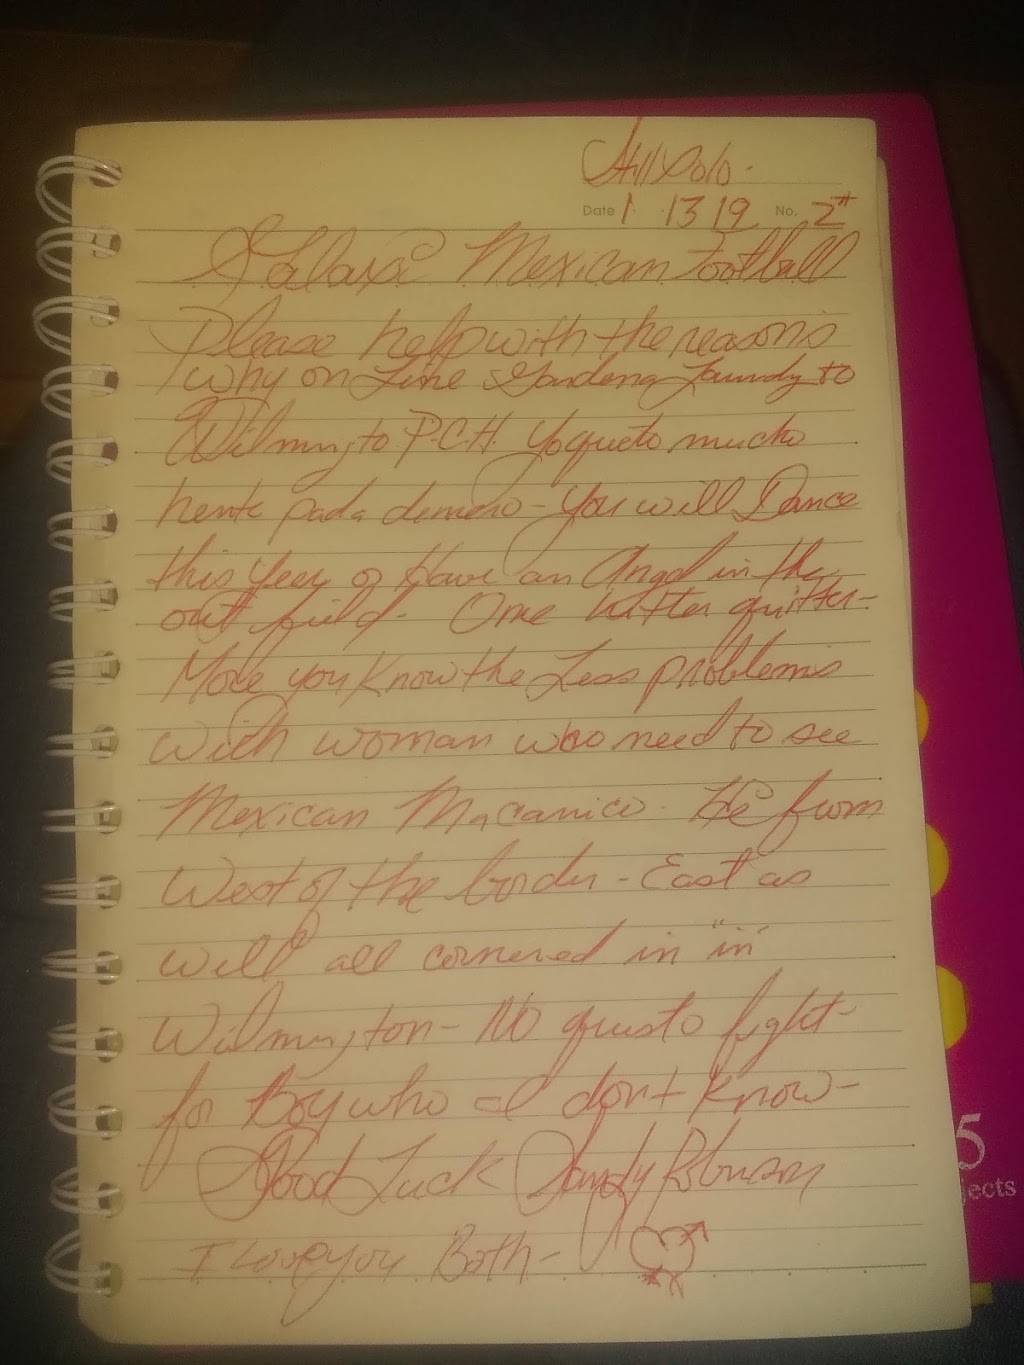 Still Solo.
Date 1 13 19 No. 2#
Galaxie Mexican Football
Please help with the reasons
why on Line Gardena Laundy to
Wilmington P.C.H. Yoqueto mucho
hente pada denero - You will Dance
this Year of Have an Angel in the
out field. One hitter quitter-
More you Know the Less problems
with woman who need to see
Mexican Macanico. He from
West of the border - East as
well all cornered in "in"
Wilmington - No gusto fight-
for Boy who I don't Know -
Good Luck Sandy Robinson
I Love you Both -
5
jects